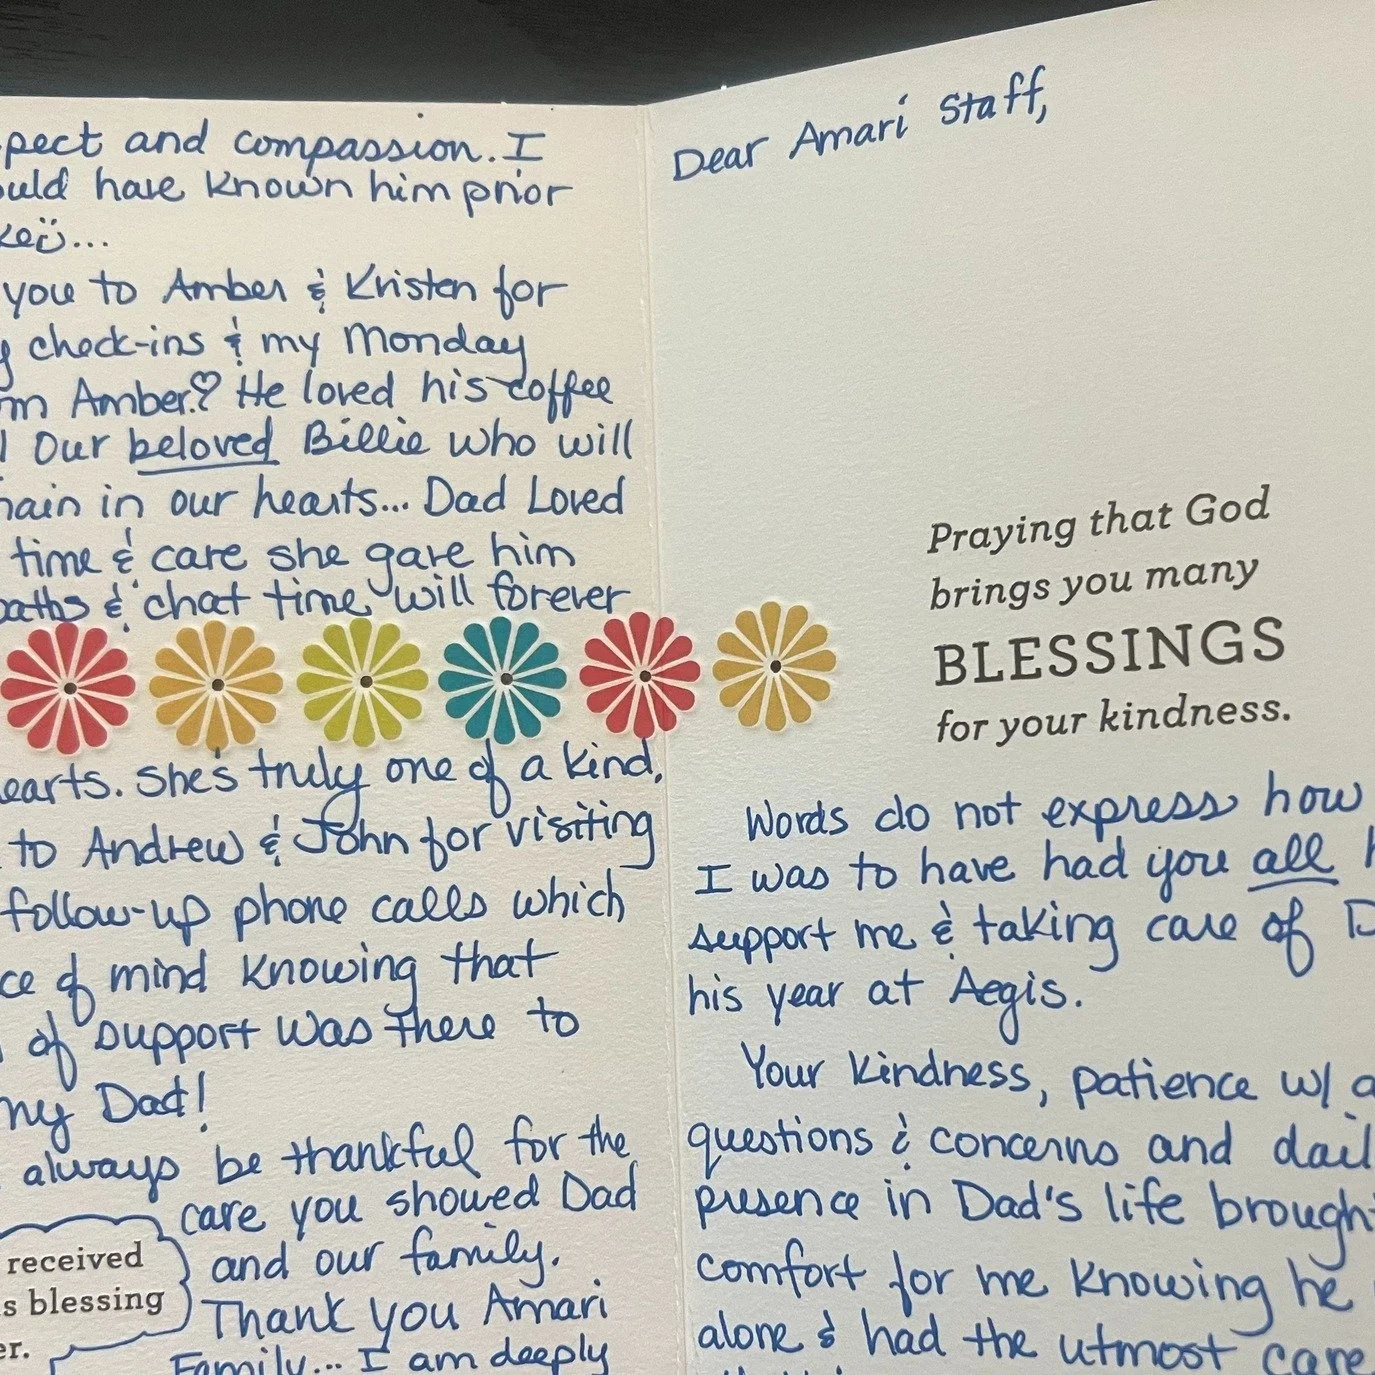 pect and compassion. I
ould have known him prior
ke ü...
you to Amber & Kristen for
g check-ins & my Monday
om Amber.♡ He loved his coffee
Our beloved Billie who will
main in our hearts... Dad Loved
time & care she gave him
baths & chat time will forever
hearts. She's truly one of a kind.
to Andrew & John for visiting
follow-up phone calls which
ce of mind knowing that
of support was there to
my Dad!
always be thankful for the
care you showed Dad
and our family.
Thank you Amari
Family... I am deeply
received
s blessing
er.
Dear Amari Staff,
Praying that God
brings you many
BLESSINGS
for your kindness.
Words do not express how
I was to have had you all h
support me & taking care of D
his year at Aegis.
Your kindness, patience w/ a
questions & concerns and dail
presence in Dad's life brought
comfort for me knowing he
alone & had the utmost care